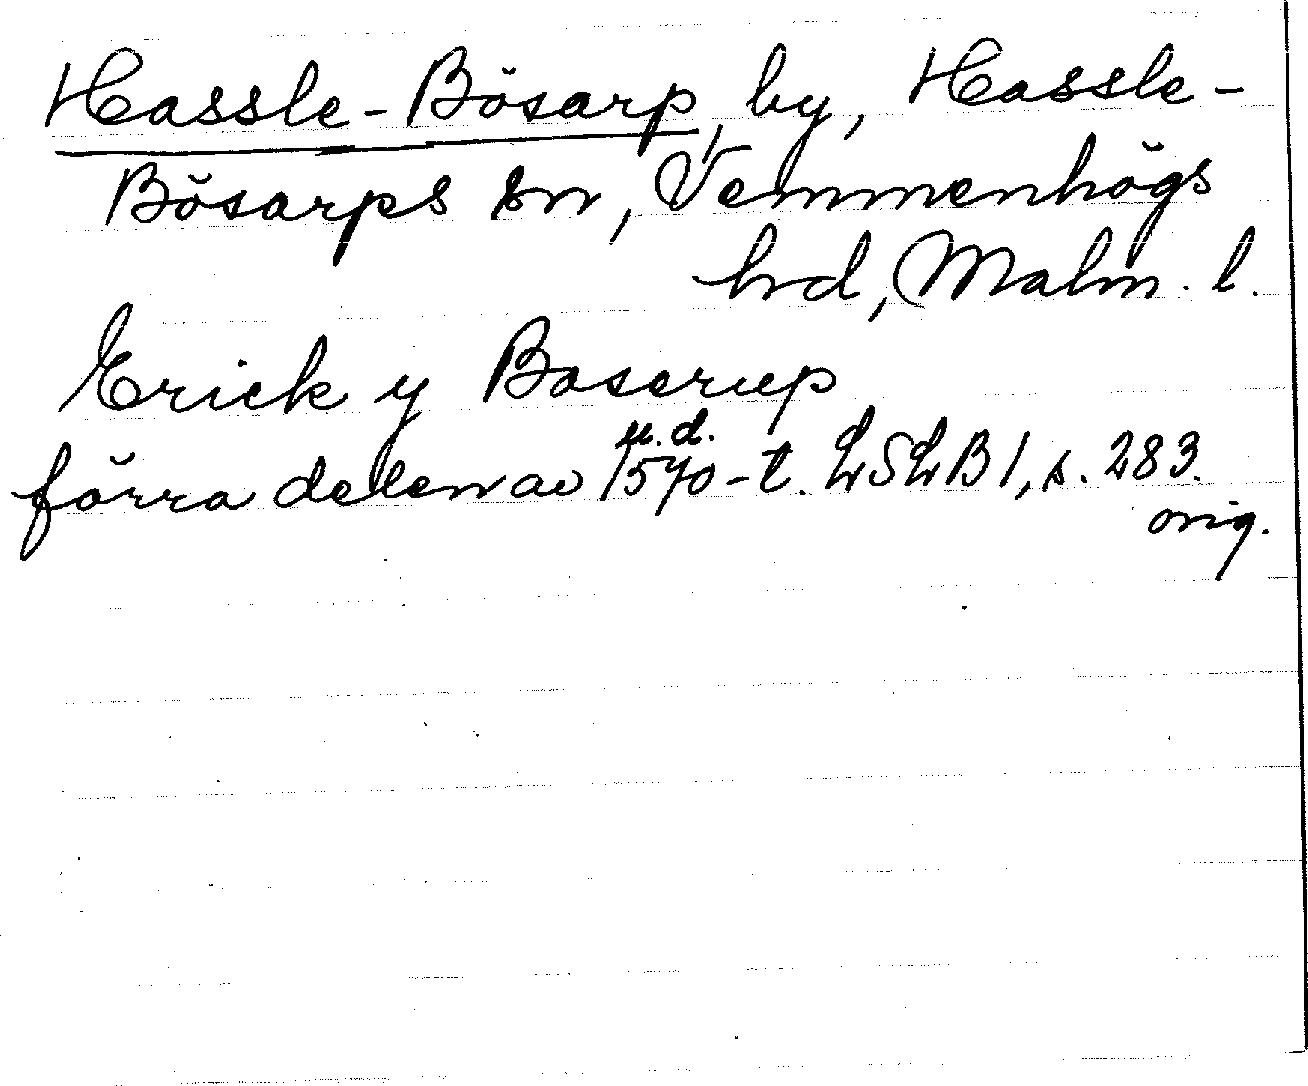 Hassle-Bösarp, by, Hassle-
Bösarps sn, Vemmenhögs
hd, Malm. l.
Erick y Boserup
u.d.
förra delen av 1570-t. LSLB 1, s. 283.
orig.